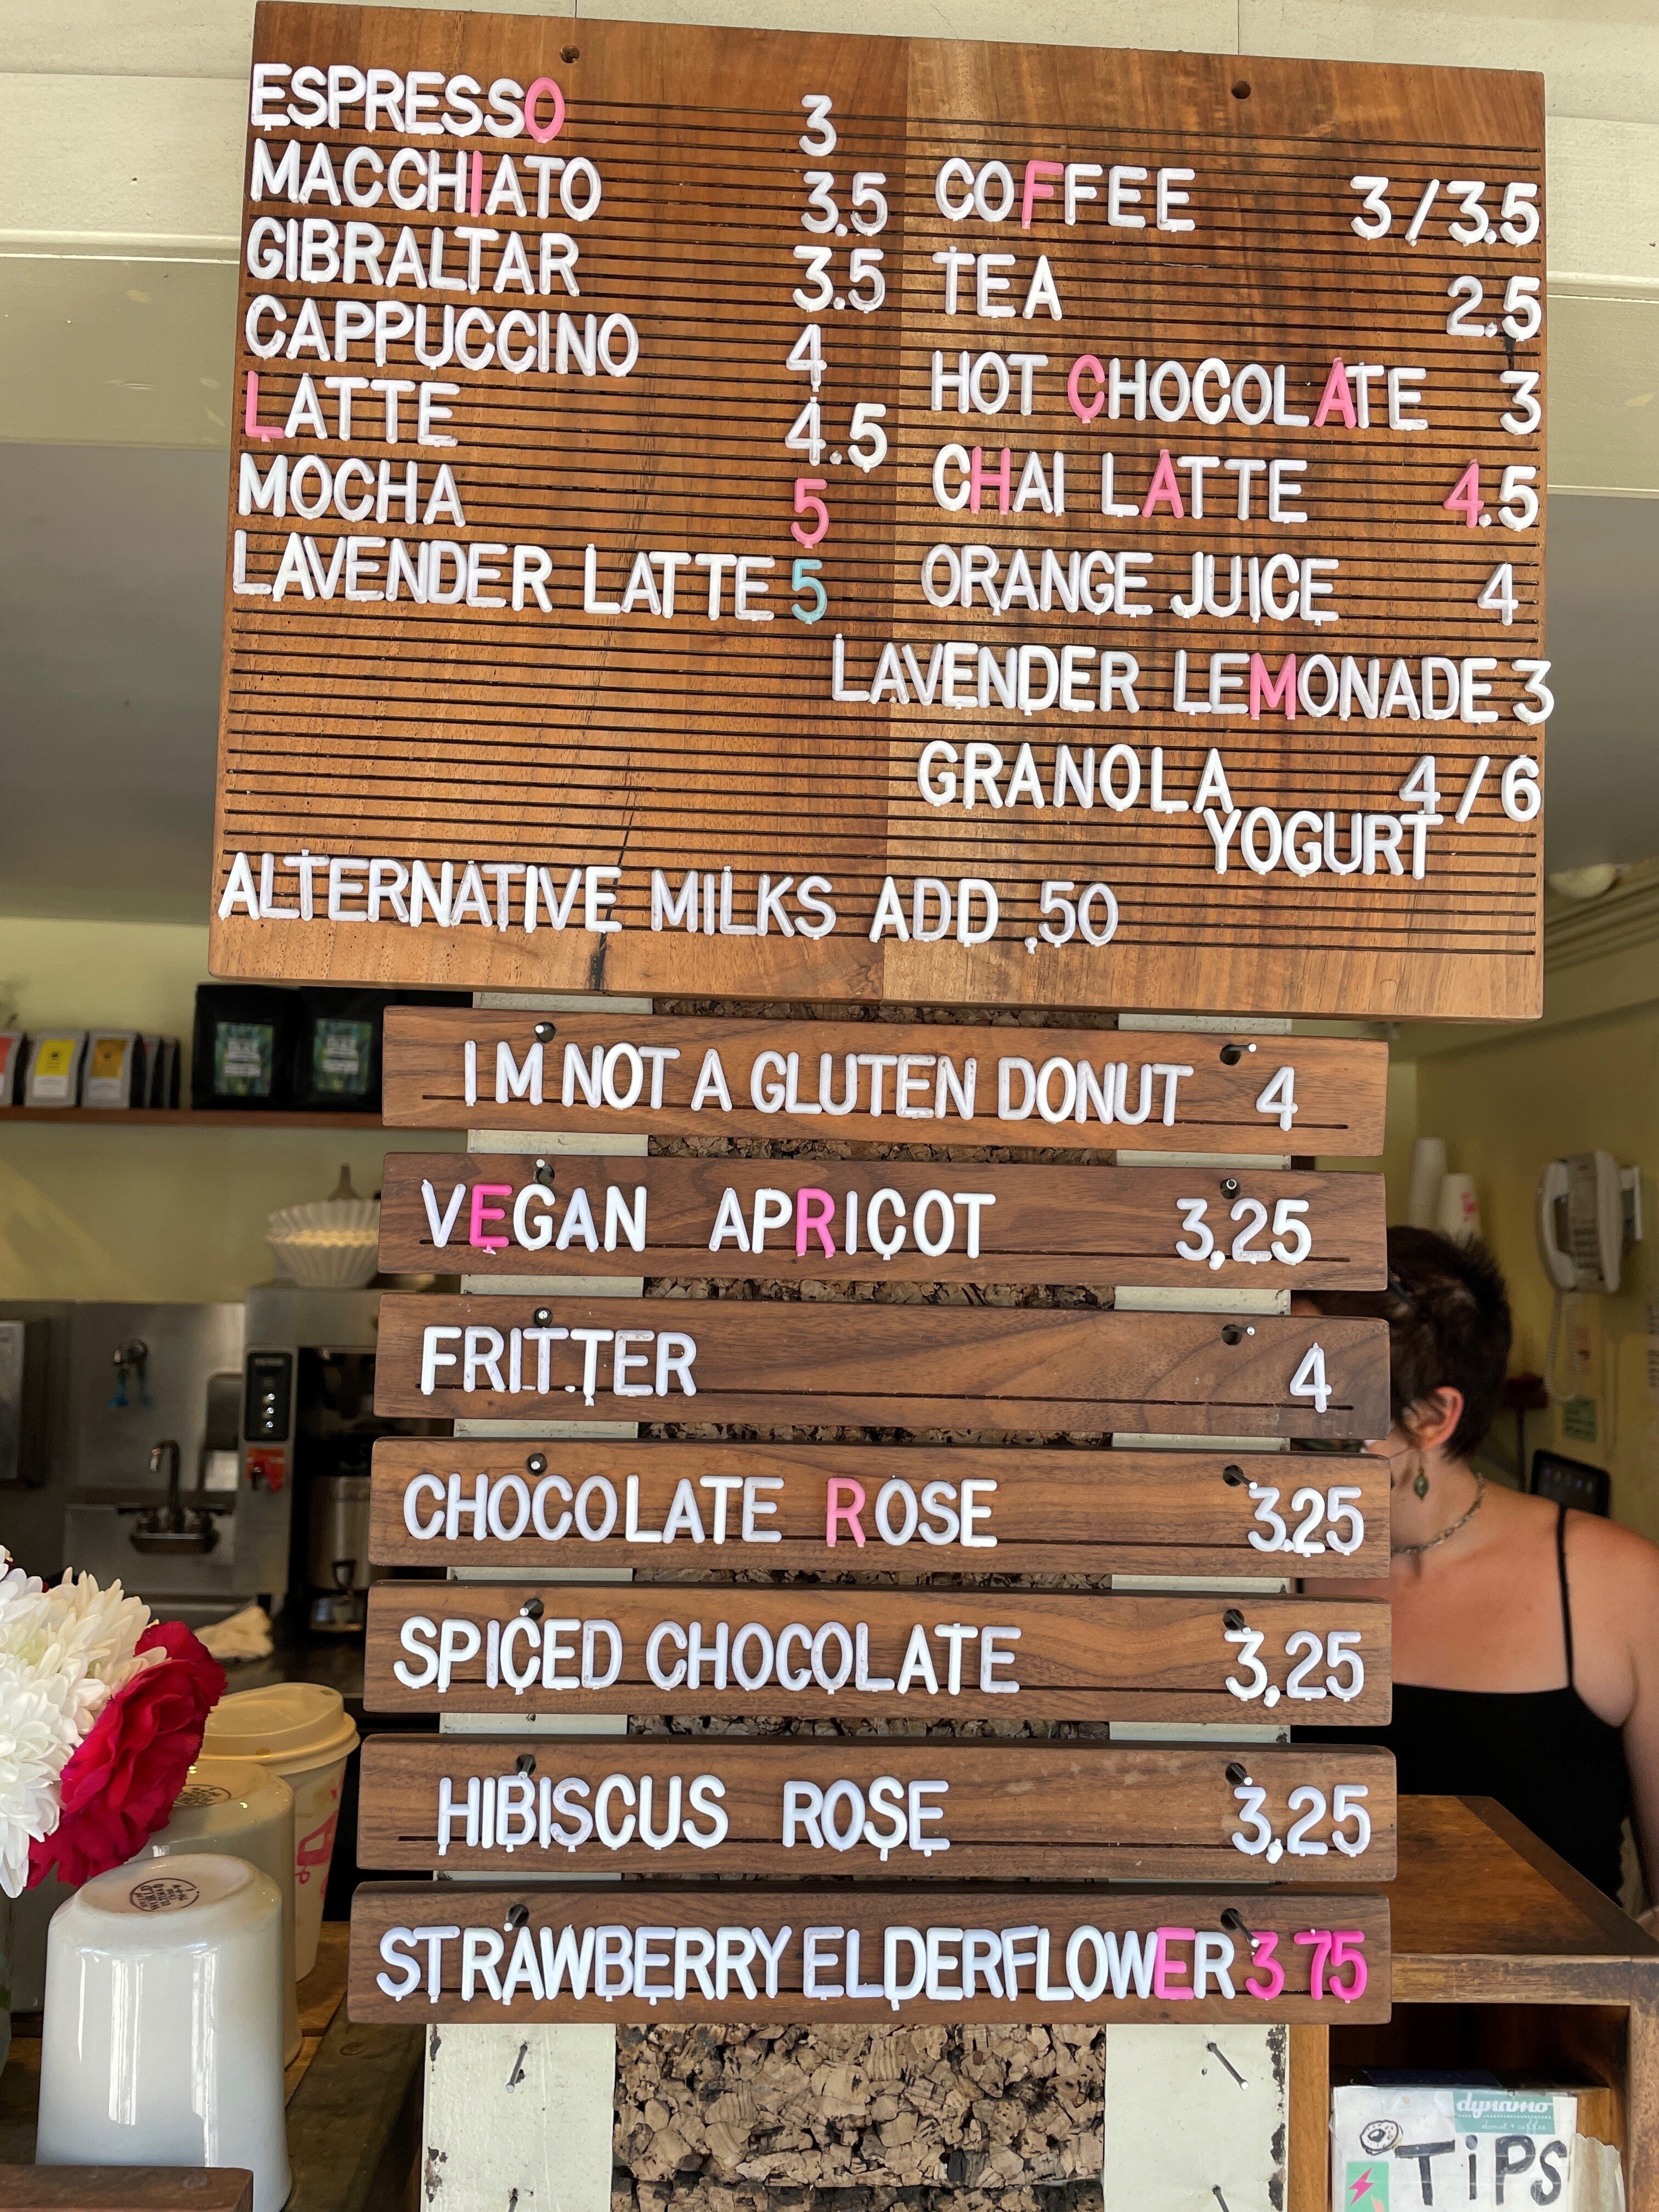 ESPRESSO 3
MACCHIATO 3.5
GIBRALTAR 3.5
CAPPUCCINO 4
LATTE 4.5
MOCHA 5
LAVENDER LATTE 5
COFFEE 3/3.5
TEA 2.5
HOT CHOCOLATE 3
CHAI LATTE 4.5
ORANGE JUICE 4
LAVENDER LEMONADE 3
GRANOLA 4/6
YOGURT
ALTERNATIVE MILKS ADD .50
I M NOT A GLUTEN DONUT 4
VEGAN APRICOT 3.25
FRITTER 4
CHOCOLATE ROSE 3.25
SPICED CHOCOLATE 3.25
HIBISCUS ROSE 3.25
STRAWBERRY ELDERFLOWER 3 75
dynamo
TiPS